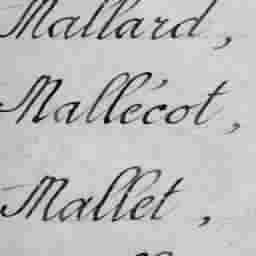 Mallard,
Mallécot,
Mallet,